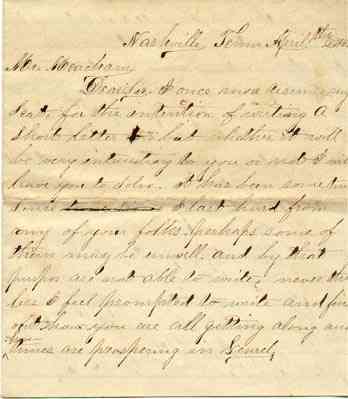 Nashville Tenn April
Mr Meacham
Dear Sir I once more resume my
seat for the intention of writing a
short letter but whether it will
be very interesting to you or not I will
leave you to
it has been some time
since I last hurd from
any of your folks. perhaps some of
them may be unwell. and by that
purpos are not able to write. never the
les I feel prompted to write and fin
out how you are all getting along and
times are prospering in